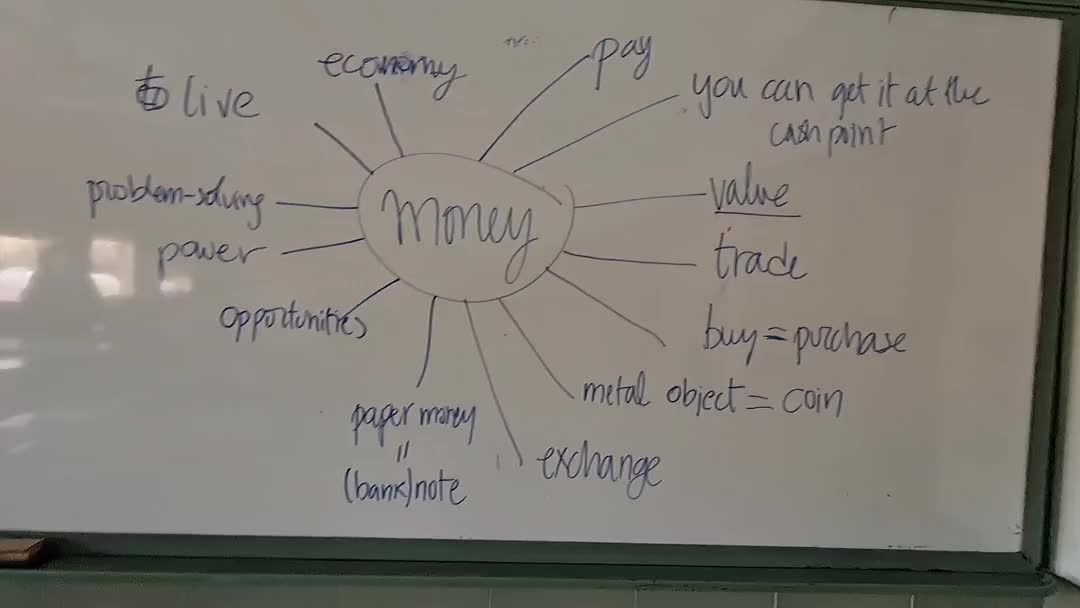 economy
pay
to live
you can get it at the
cashpoint
problem-solving
money
value
power
trade
opportunities
buy = purchase
metal object = coin
paper money
=
(bank)note
exchange